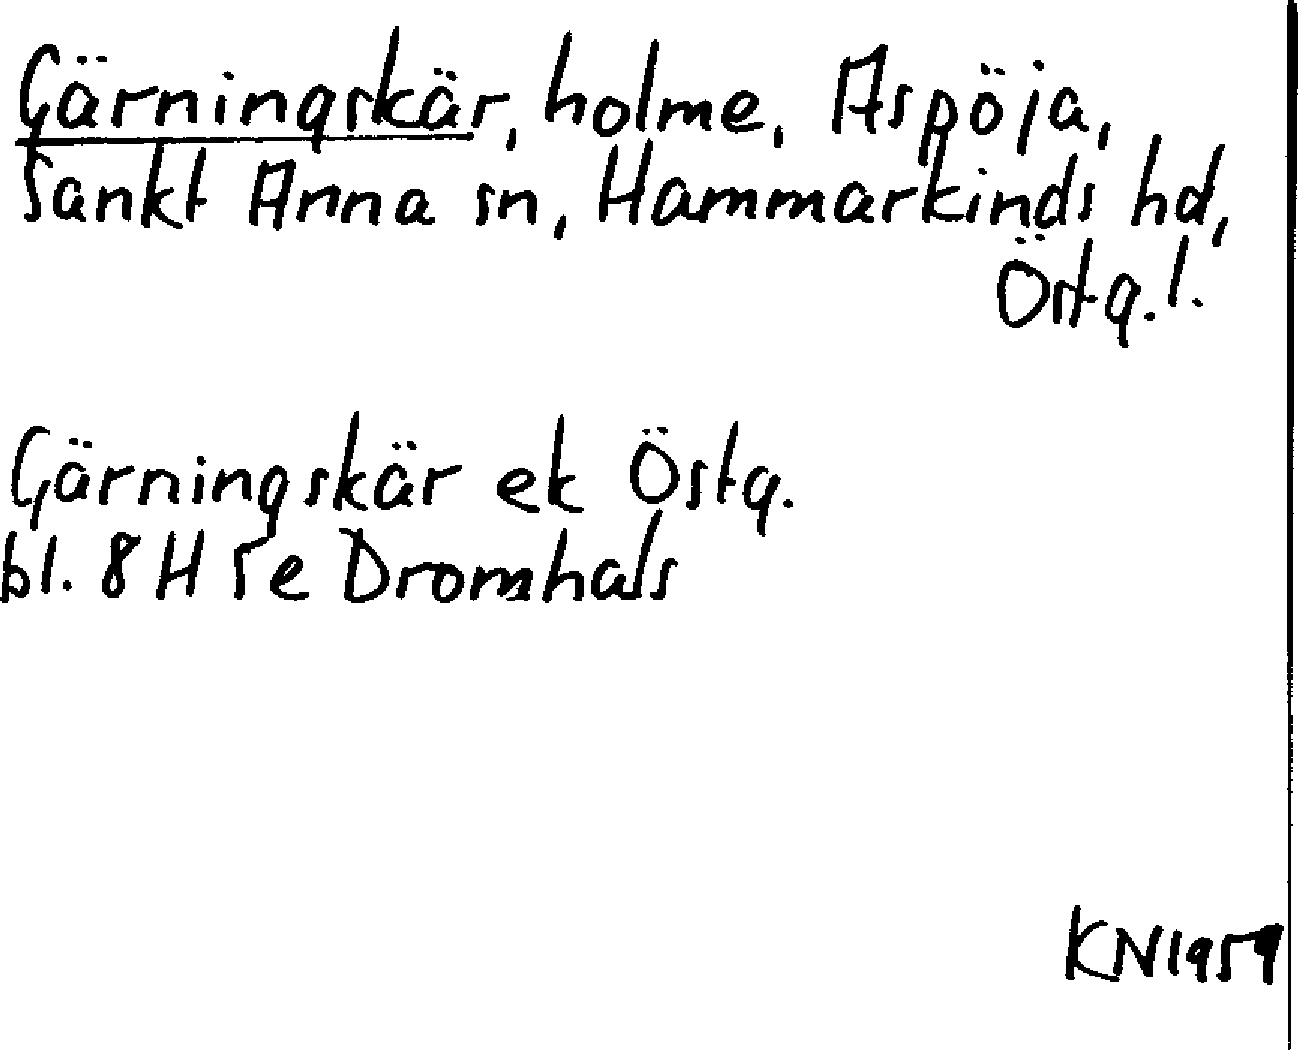 Gärningskär, holme, Aspöja,
Sankt Anna sn, Hammarkinds hd,
Östg.l.
Gärningskär ek Östg.
bl. 8 H 5e Dromhals
KN1959